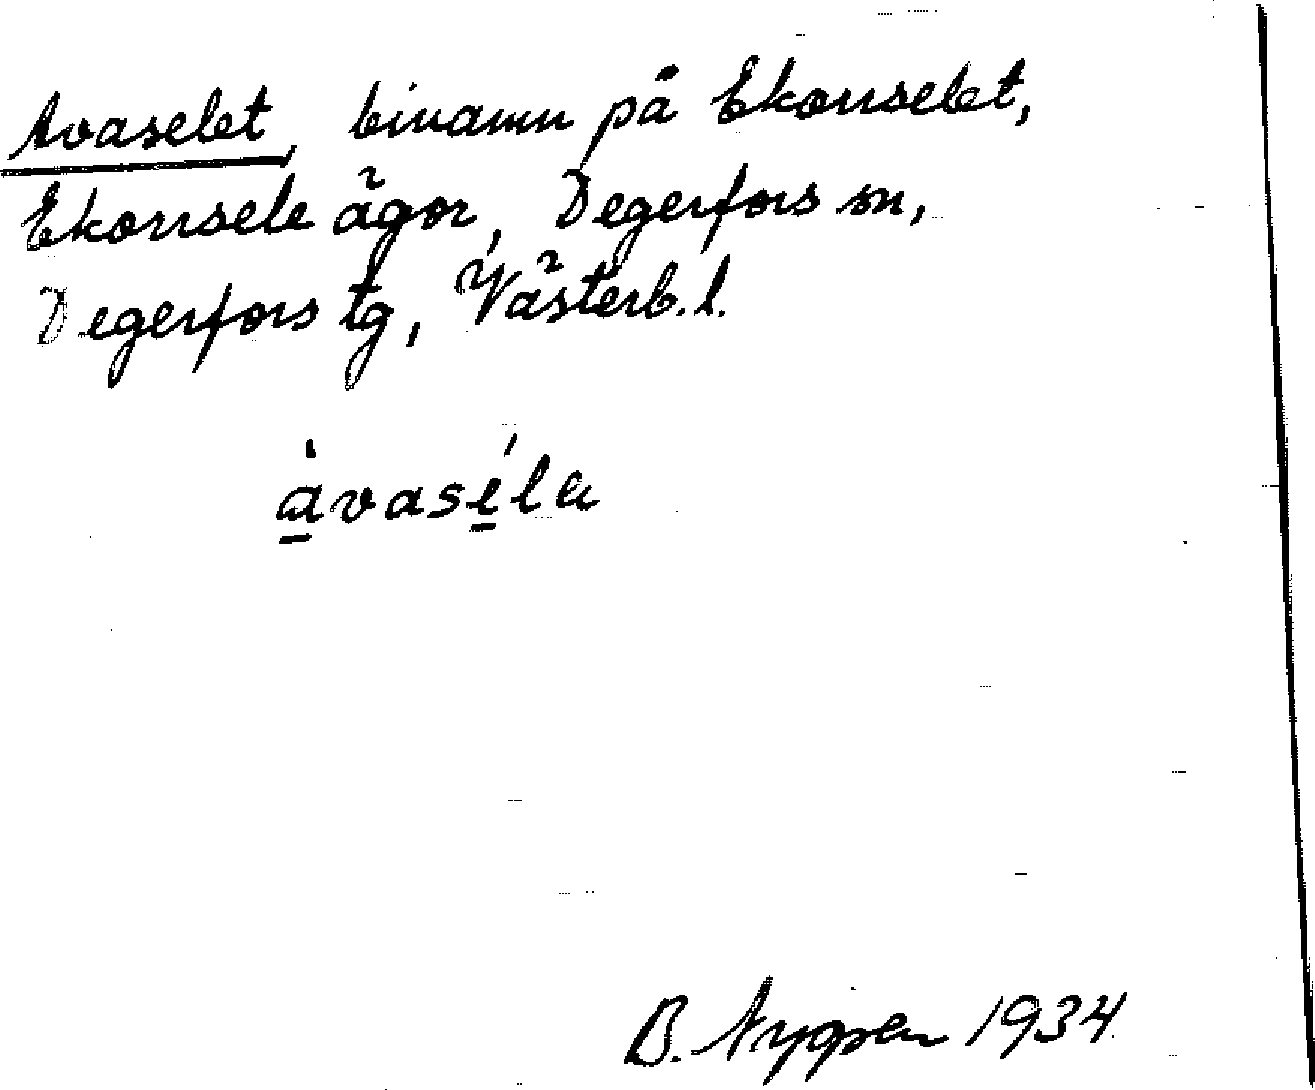 Avaselet, binamn på Ekorrselet,
Ekorrsele ägor, Degerfors sn,
Degerfors tg, Västerb. l.
àvaséla
B. Nygren 1934